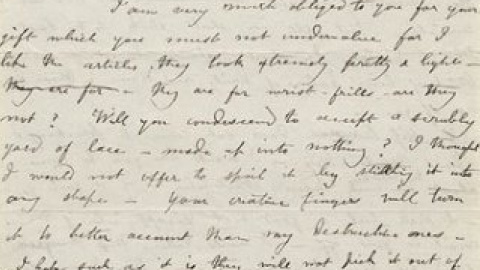 I am very much obliged to you for your
gift which you must not undervalue for I
like the articles, they look extremely pretty & light -
they are for - they are for wrist-frills - are they
not? Will you condescend to accept a scrubby
yard of lace - made up into nothing? I thought
I would not offer to spoil it by stitching it into
any shape - Your creative fingers will turn
it to better account than my destructive ones -
I hope, such as it is they will not pick it out of